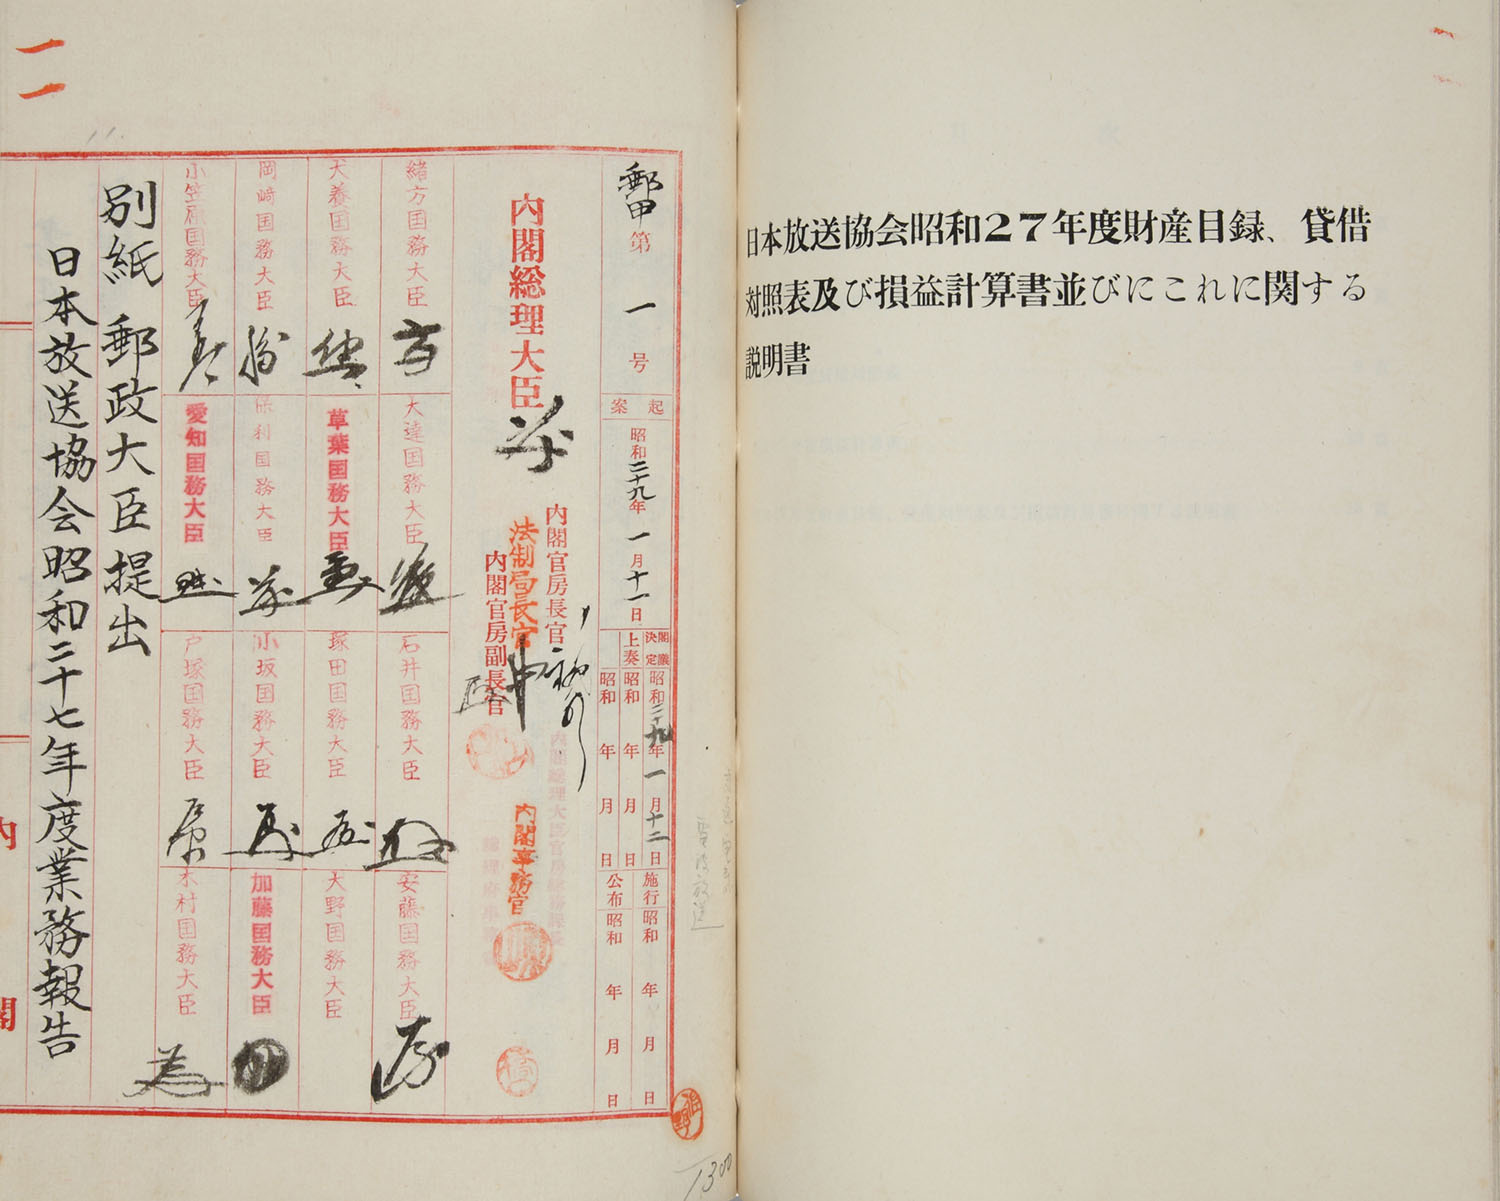 一一
郵甲第一号
起案
昭和二十九年一月十一日
閣議決定
昭和二十九年一月十二日
上奏
昭和 年 月 日
昭和 年 月 日
施行
昭和 年 月 日
公布
昭和 年 月 日
内閣総理大臣
内閣官房長官
法制局長官
内閣官房副長官
内閣事務官
緒方国務大臣
大達国務大臣
石井国務大臣
安藤国務大臣
犬養国務大臣
草葉国務大臣
塚田国務大臣
大野国務大臣
岡崎国務大臣
保利国務大臣
小坂国務大臣
加藤国務大臣
小笠原国務大臣
愛知国務大臣
戸塚国務大臣
木村国務大臣
別紙 郵政大臣提出
日本放送協会昭和二十七年度業務報告
内閣
1300
日本放送協会昭和27年度財産目録、貸借
対照表及び損益計算書並びにこれに関する
説明書